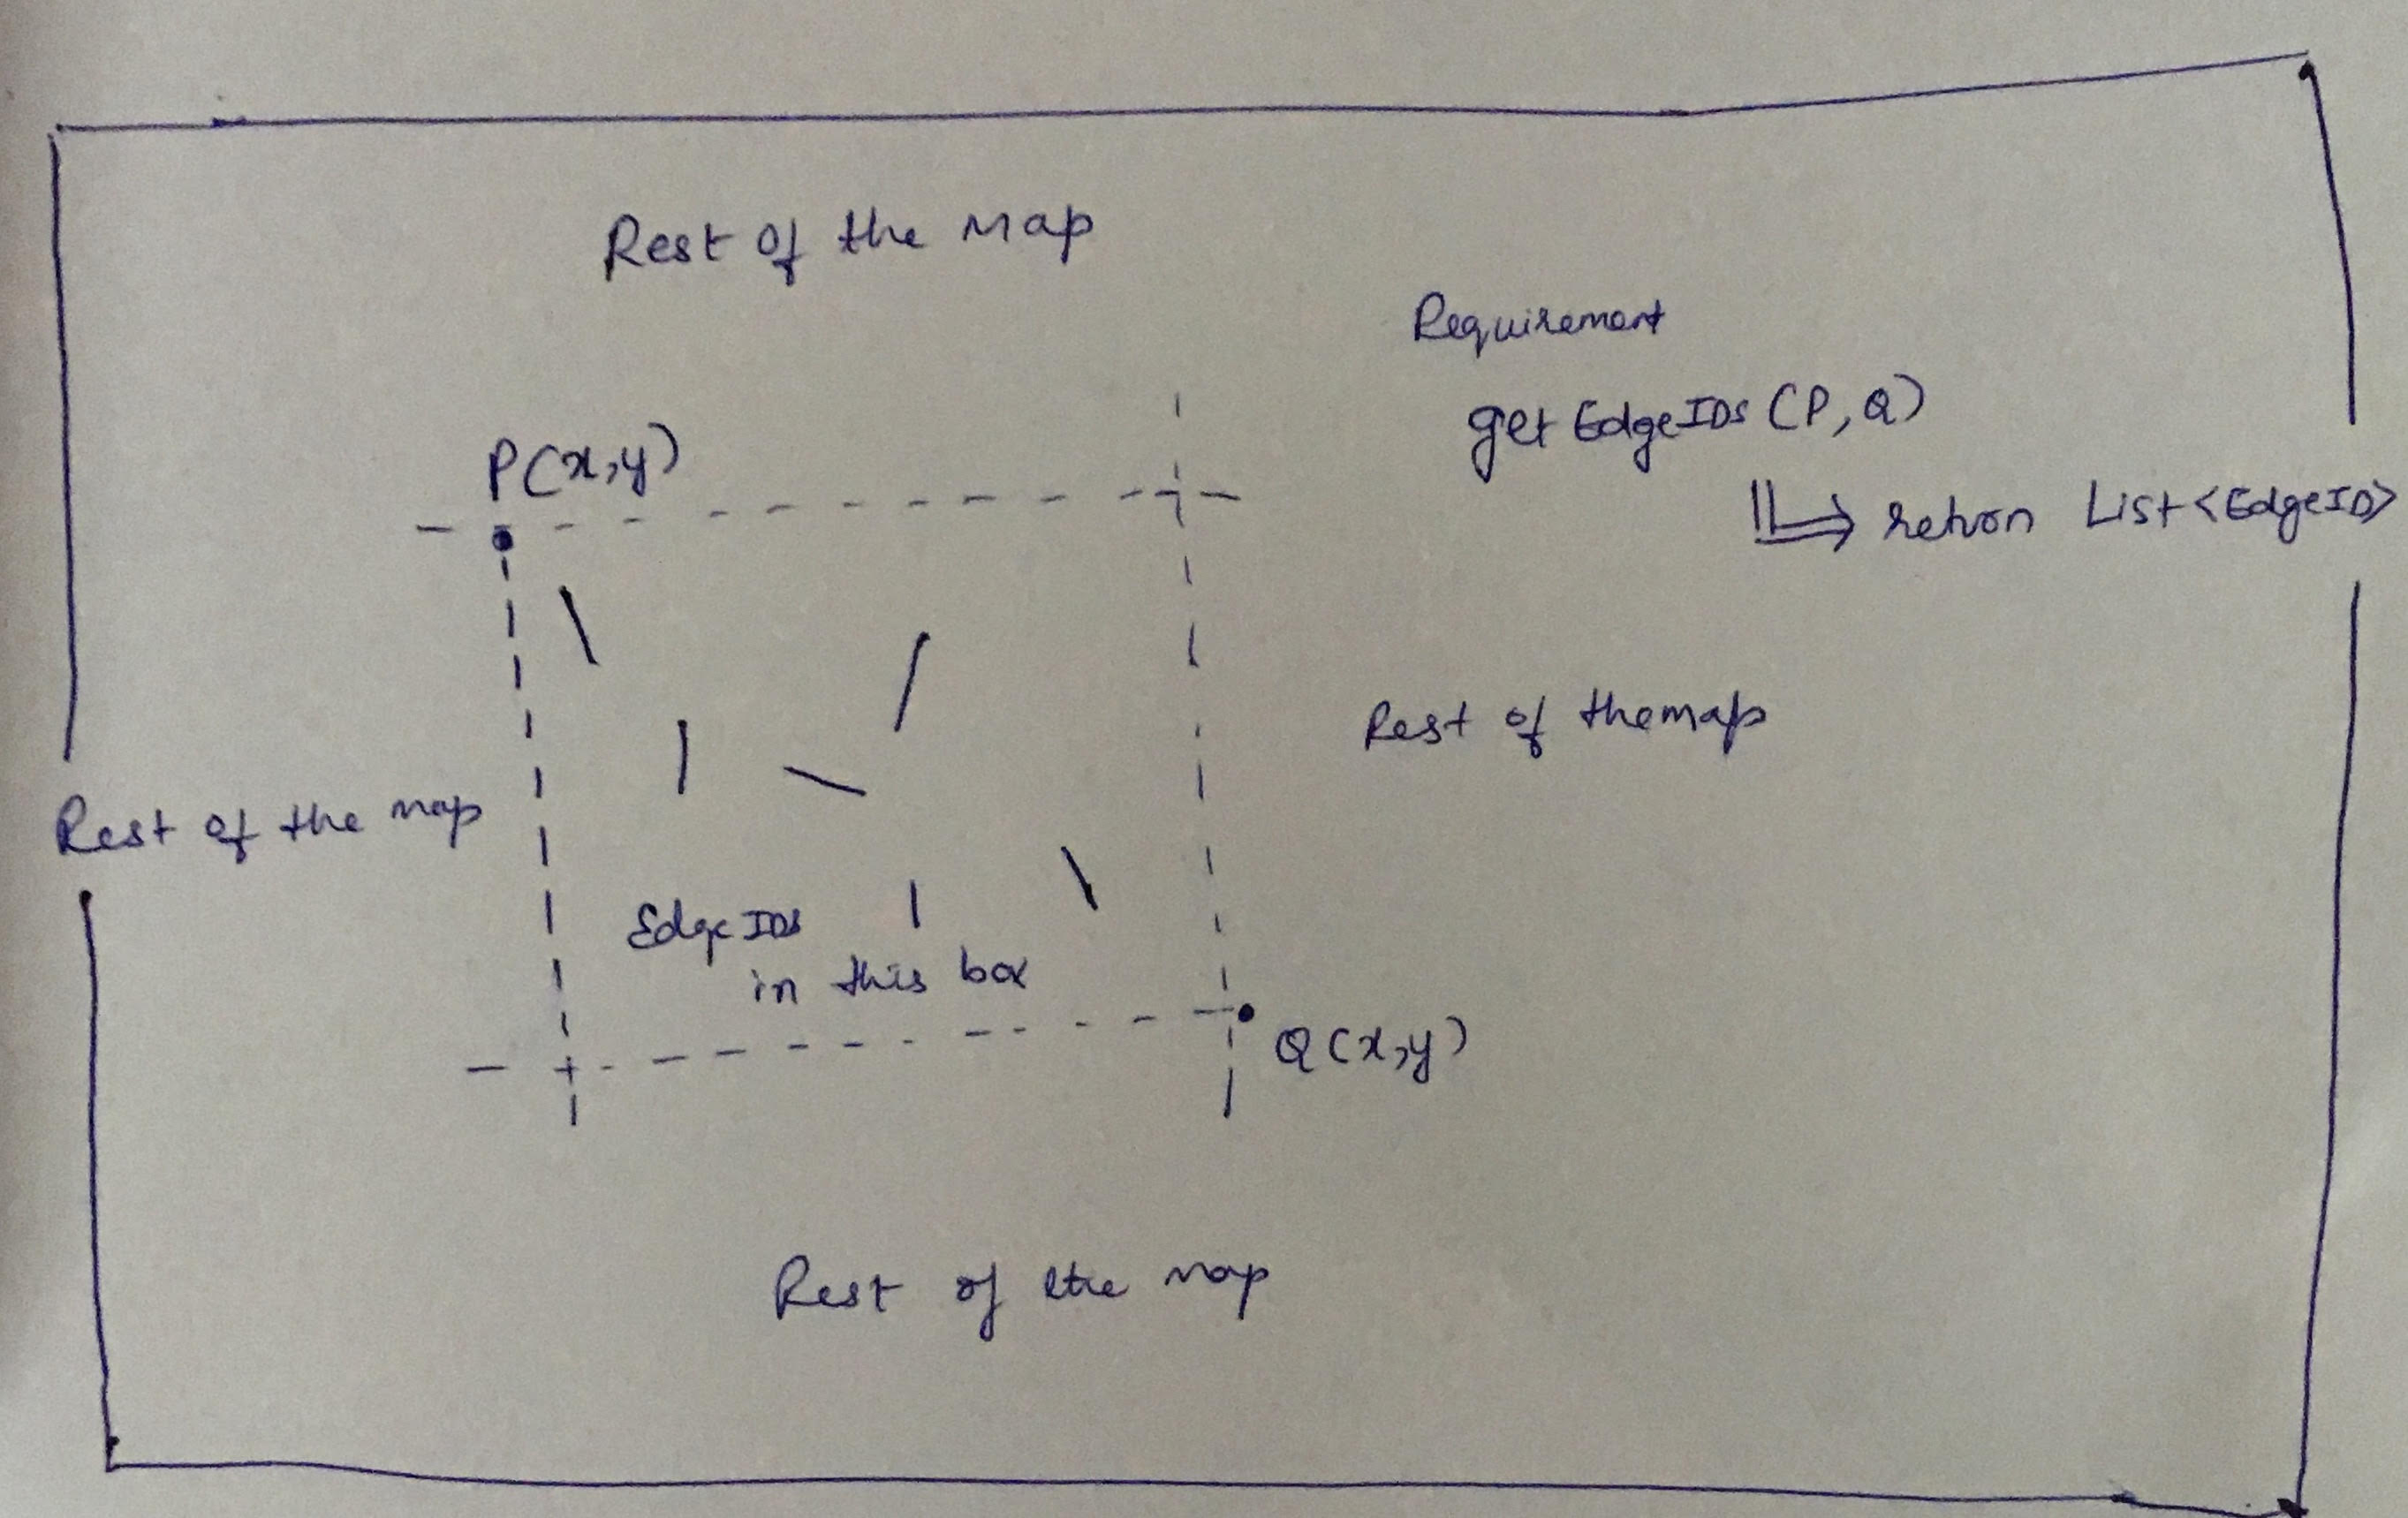 Rest of the Map
Requirement
get EdgeIDs (P, Q)
return List<EdgeID>
P(x,y)
Rest of the map
Rest of the map
EdgeIDs
in this box
Q(x,y)
Rest of the map